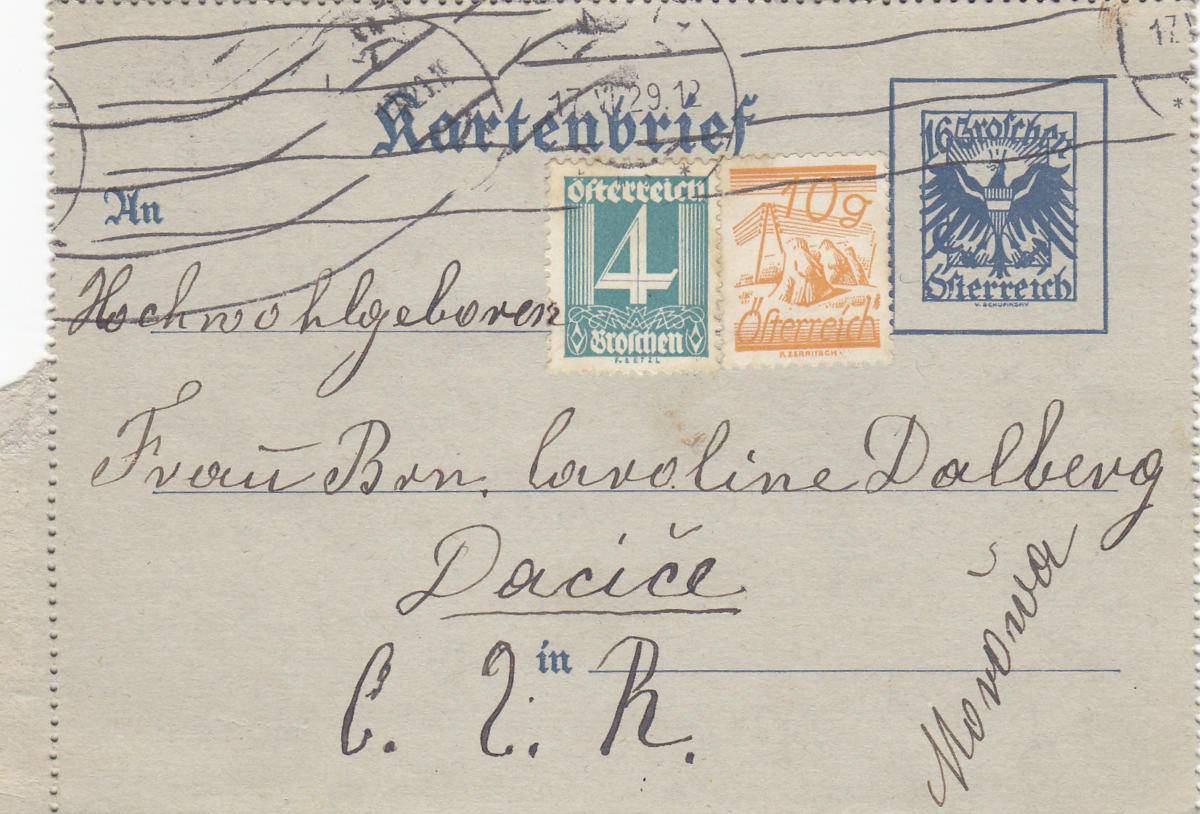 17.VI.29.12
Kartenbrief
16 Groschen
Österreich
V. SCHUFINSKY
An
Österreich
4
Groschen
10g
Österreich
Hochwohlgeboren
Frau Brn. Caroline Dalberg
Dacice
in
C. S. R.